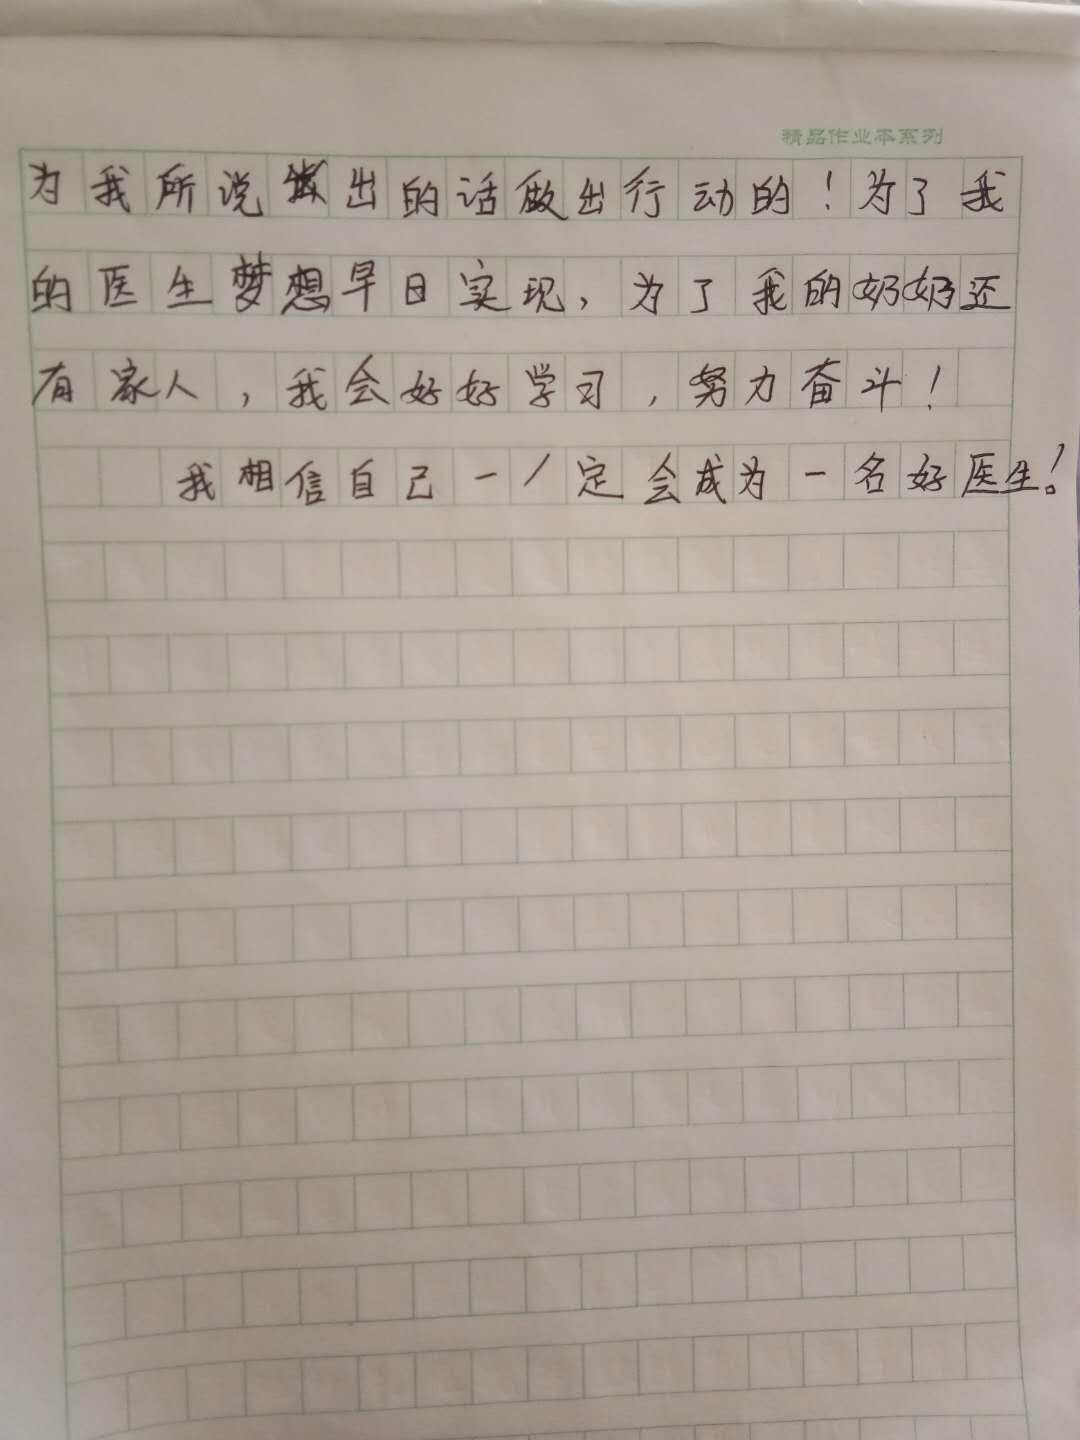 精品作业本系列
为我所说出的话做出行动的！为了我
的医生梦想早日实现，为了我的奶奶还
有家人，我会好好学习，努力奋斗！
我相信自己一定会成为一名好医生！